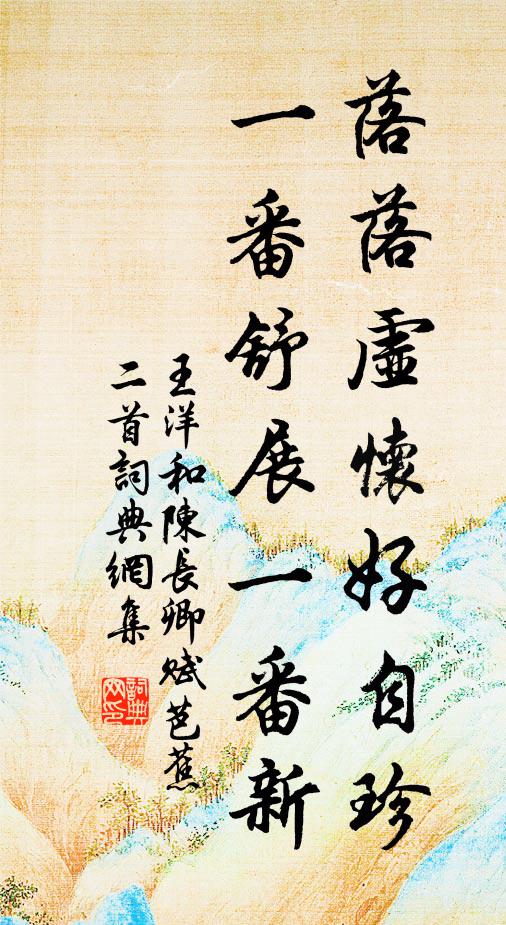 落落虛懷好自珍
一番舒展一番新
王洋和陳長卿賦芭蕉
二首詞典網集
詞典
网印